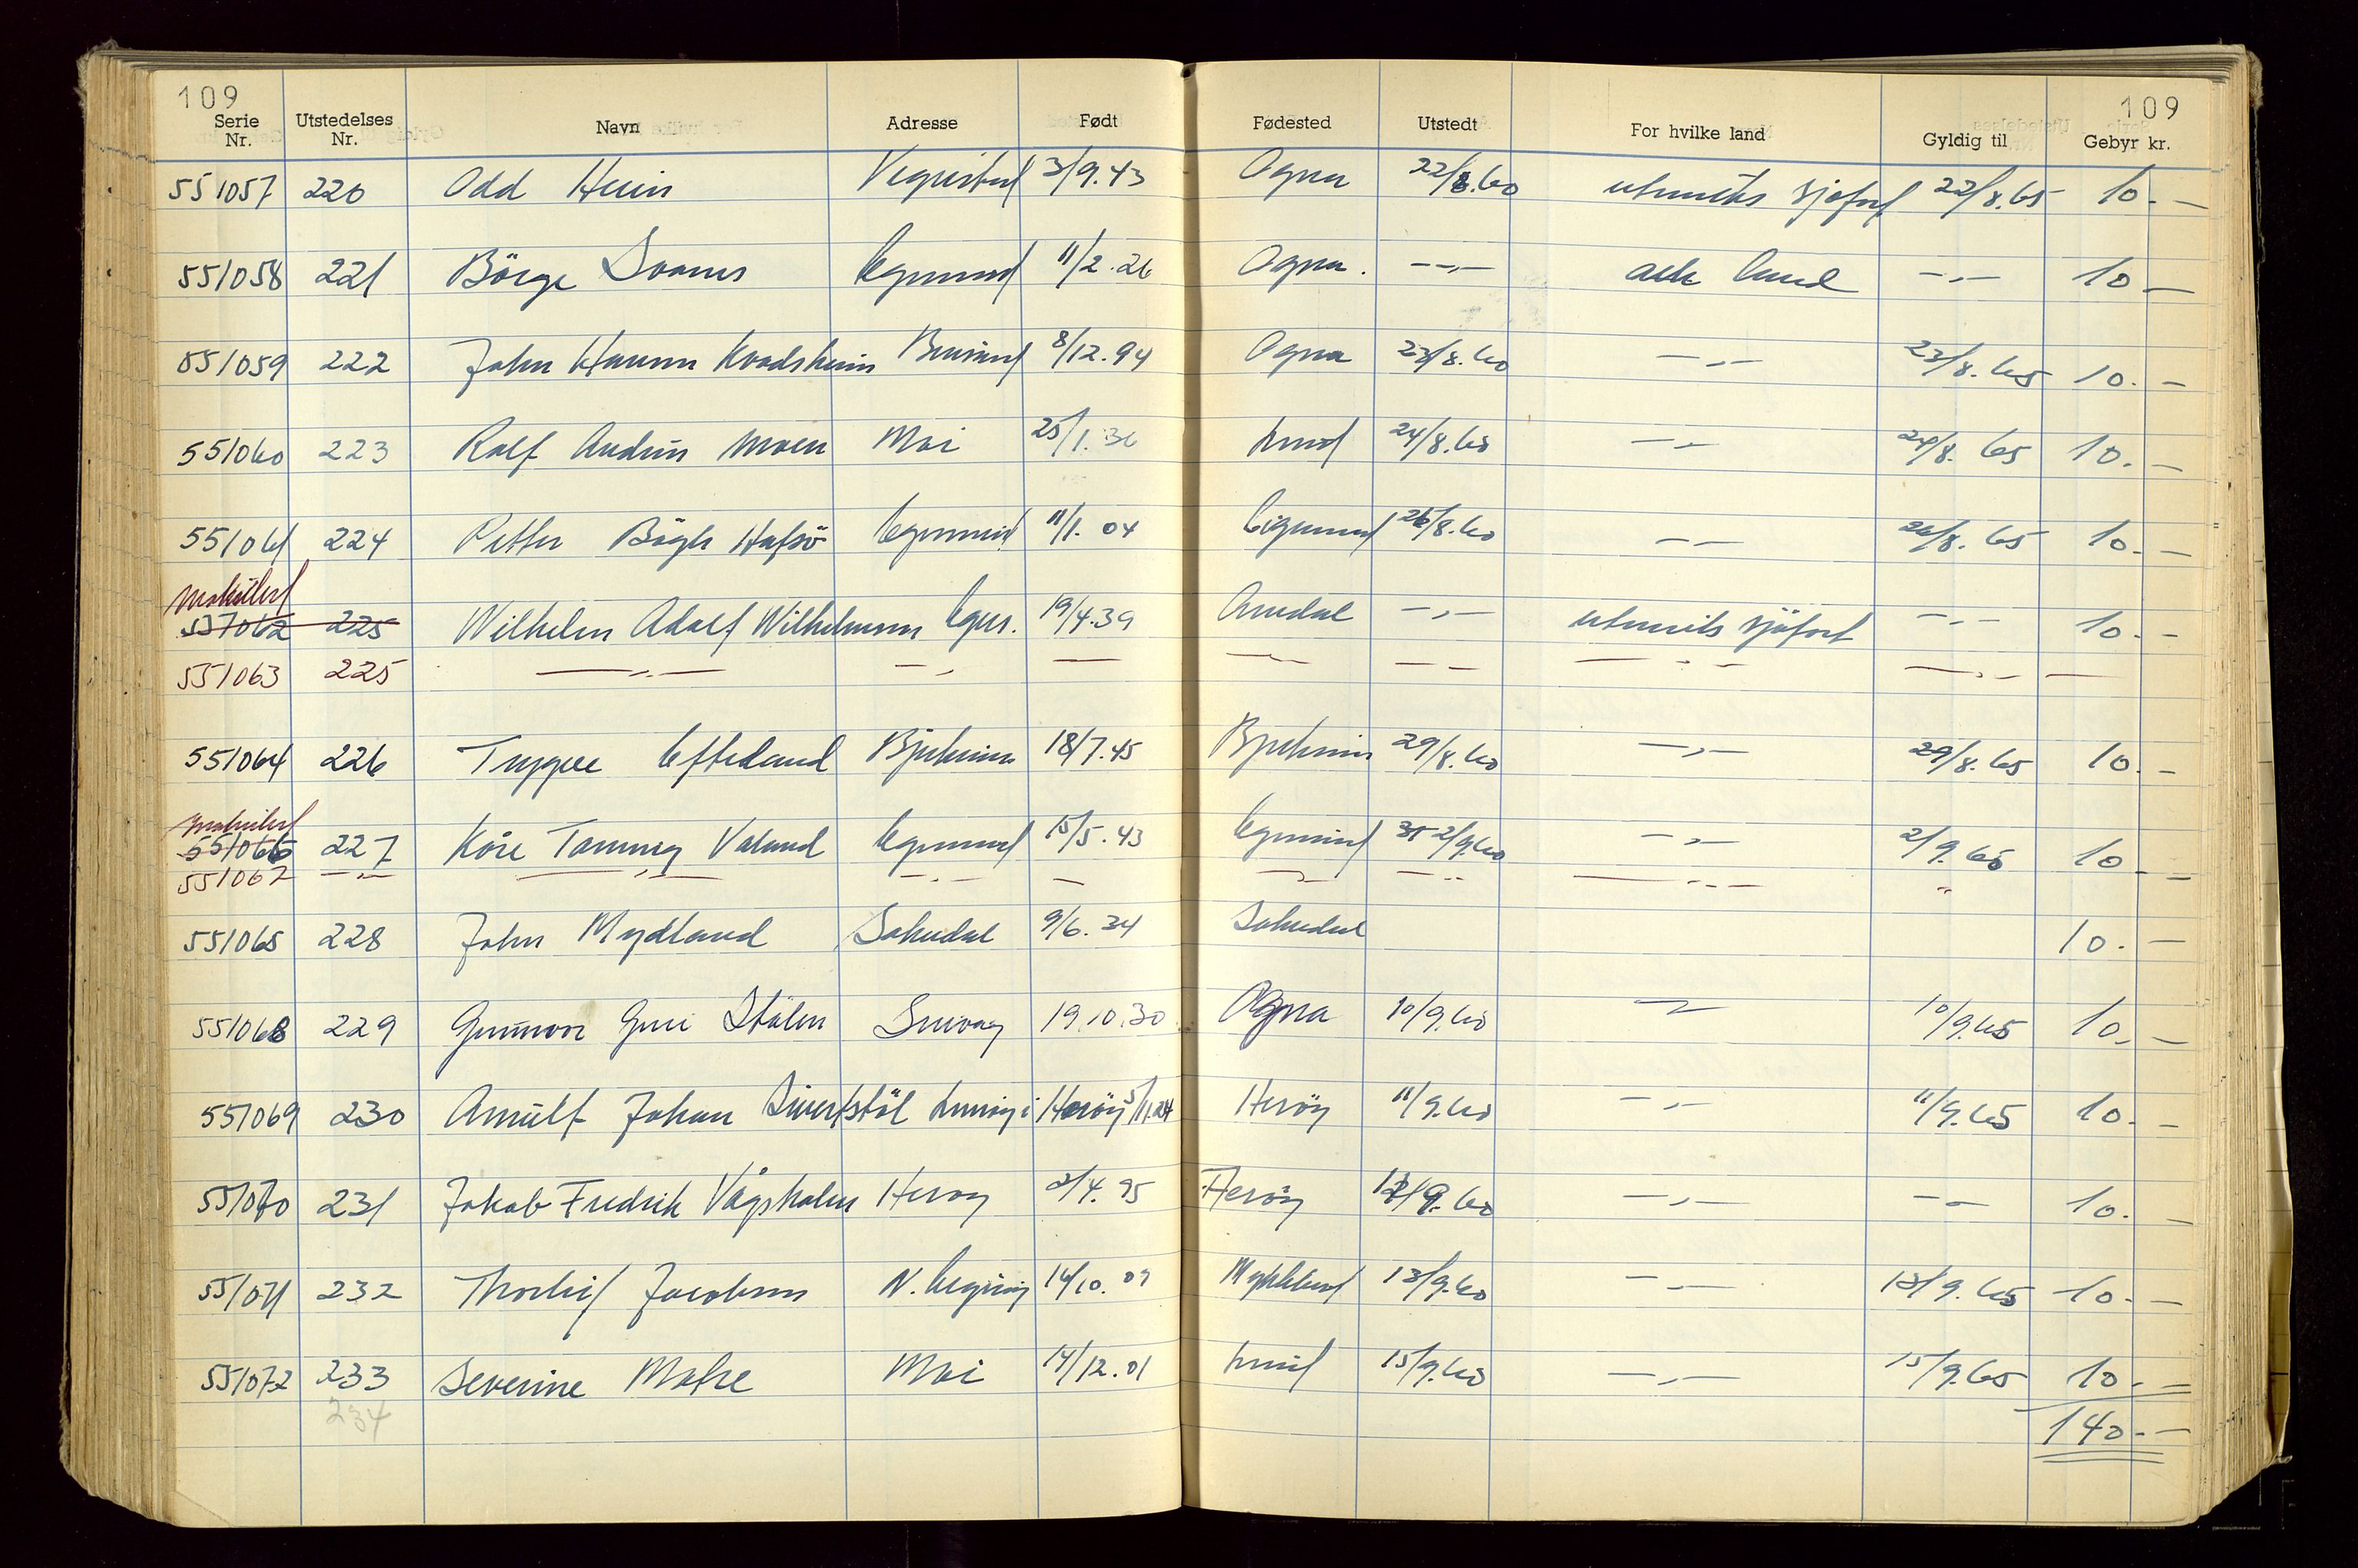 109
109
Serie Nr. Utstedelses Nr. Navn Adresse Født Fødested Utstedt For hvilke land Gyldig til Gebyr kr.
551057 220 Odd Hein 3/9.43 Ogna 22/8.60 utenriks sjøfart 22/8.65 10.-
551058 221 Börge Svanes Egersund 11/2.26 Ogna. -,,- alle land -,,- 10.-
551059 222 John Haver Kvadsheim Brusand 8/12.94 Ogna 23/8.60 -,,- 23/8.65 10.-
551060 223 Ralf Andreas Moen Moi 25/1.36 Lund 24/8.60 -,,- 24/8.65 10.-
551061 224 Petter Bögh Hafsö Egersund 11/1.04 Eigersund 26/8.60 -,,- 26/8.65 10.-
Makulert
551062 225 Wilhelm Adolf Wilhelmsen Egers. 19/4.39 Arendal -,,- utenriks sjöfart -,,- 10.-
551063 225 -,,- -,,- - -,,- -,,- -,,- -,,- -
551064 226 Trygve Eftedand Bjerkreim 18/7.45 Bjerkreim 29/8.60 -,,- 29/8.65 10.-
Makulert
551066 227 Kåre Tammy Valand Egersund 15/5.43 Egersund 31 2/9.60 -,,- 2/9.65 10.-
551067 -,,- -,,- -,,- - -,,- -,,- -,,- "
551065 228 John Mydland Sokndal 9/6.34 Sokndal 10.-
551068 229 Gunvor Guri Stålen Sirevåg 19.10.30 Ogna 10/9.60 -,,- 10/9.65 10.-
551069 230 Arnulf Johan Sivertstöl i Heröy 5/11.24 Heröy 11/9.60 -,,- 11/9.65 10.-
551070 231 Jakob Fredrik Vågsholm Heroy 2/4.95 Heröy 12/9.60 -,,- -,,- 10.-
551071 232 Thorleif Jacobsen N. Eigeröy 14/10.09 Myklebust 13/9.60 -,,- 13/9.65 10.-
551072 233 Severine Mafre Moi 14/12.01 Lund 15/9.60 -,,- 15/9.65 10.-
234
140.-